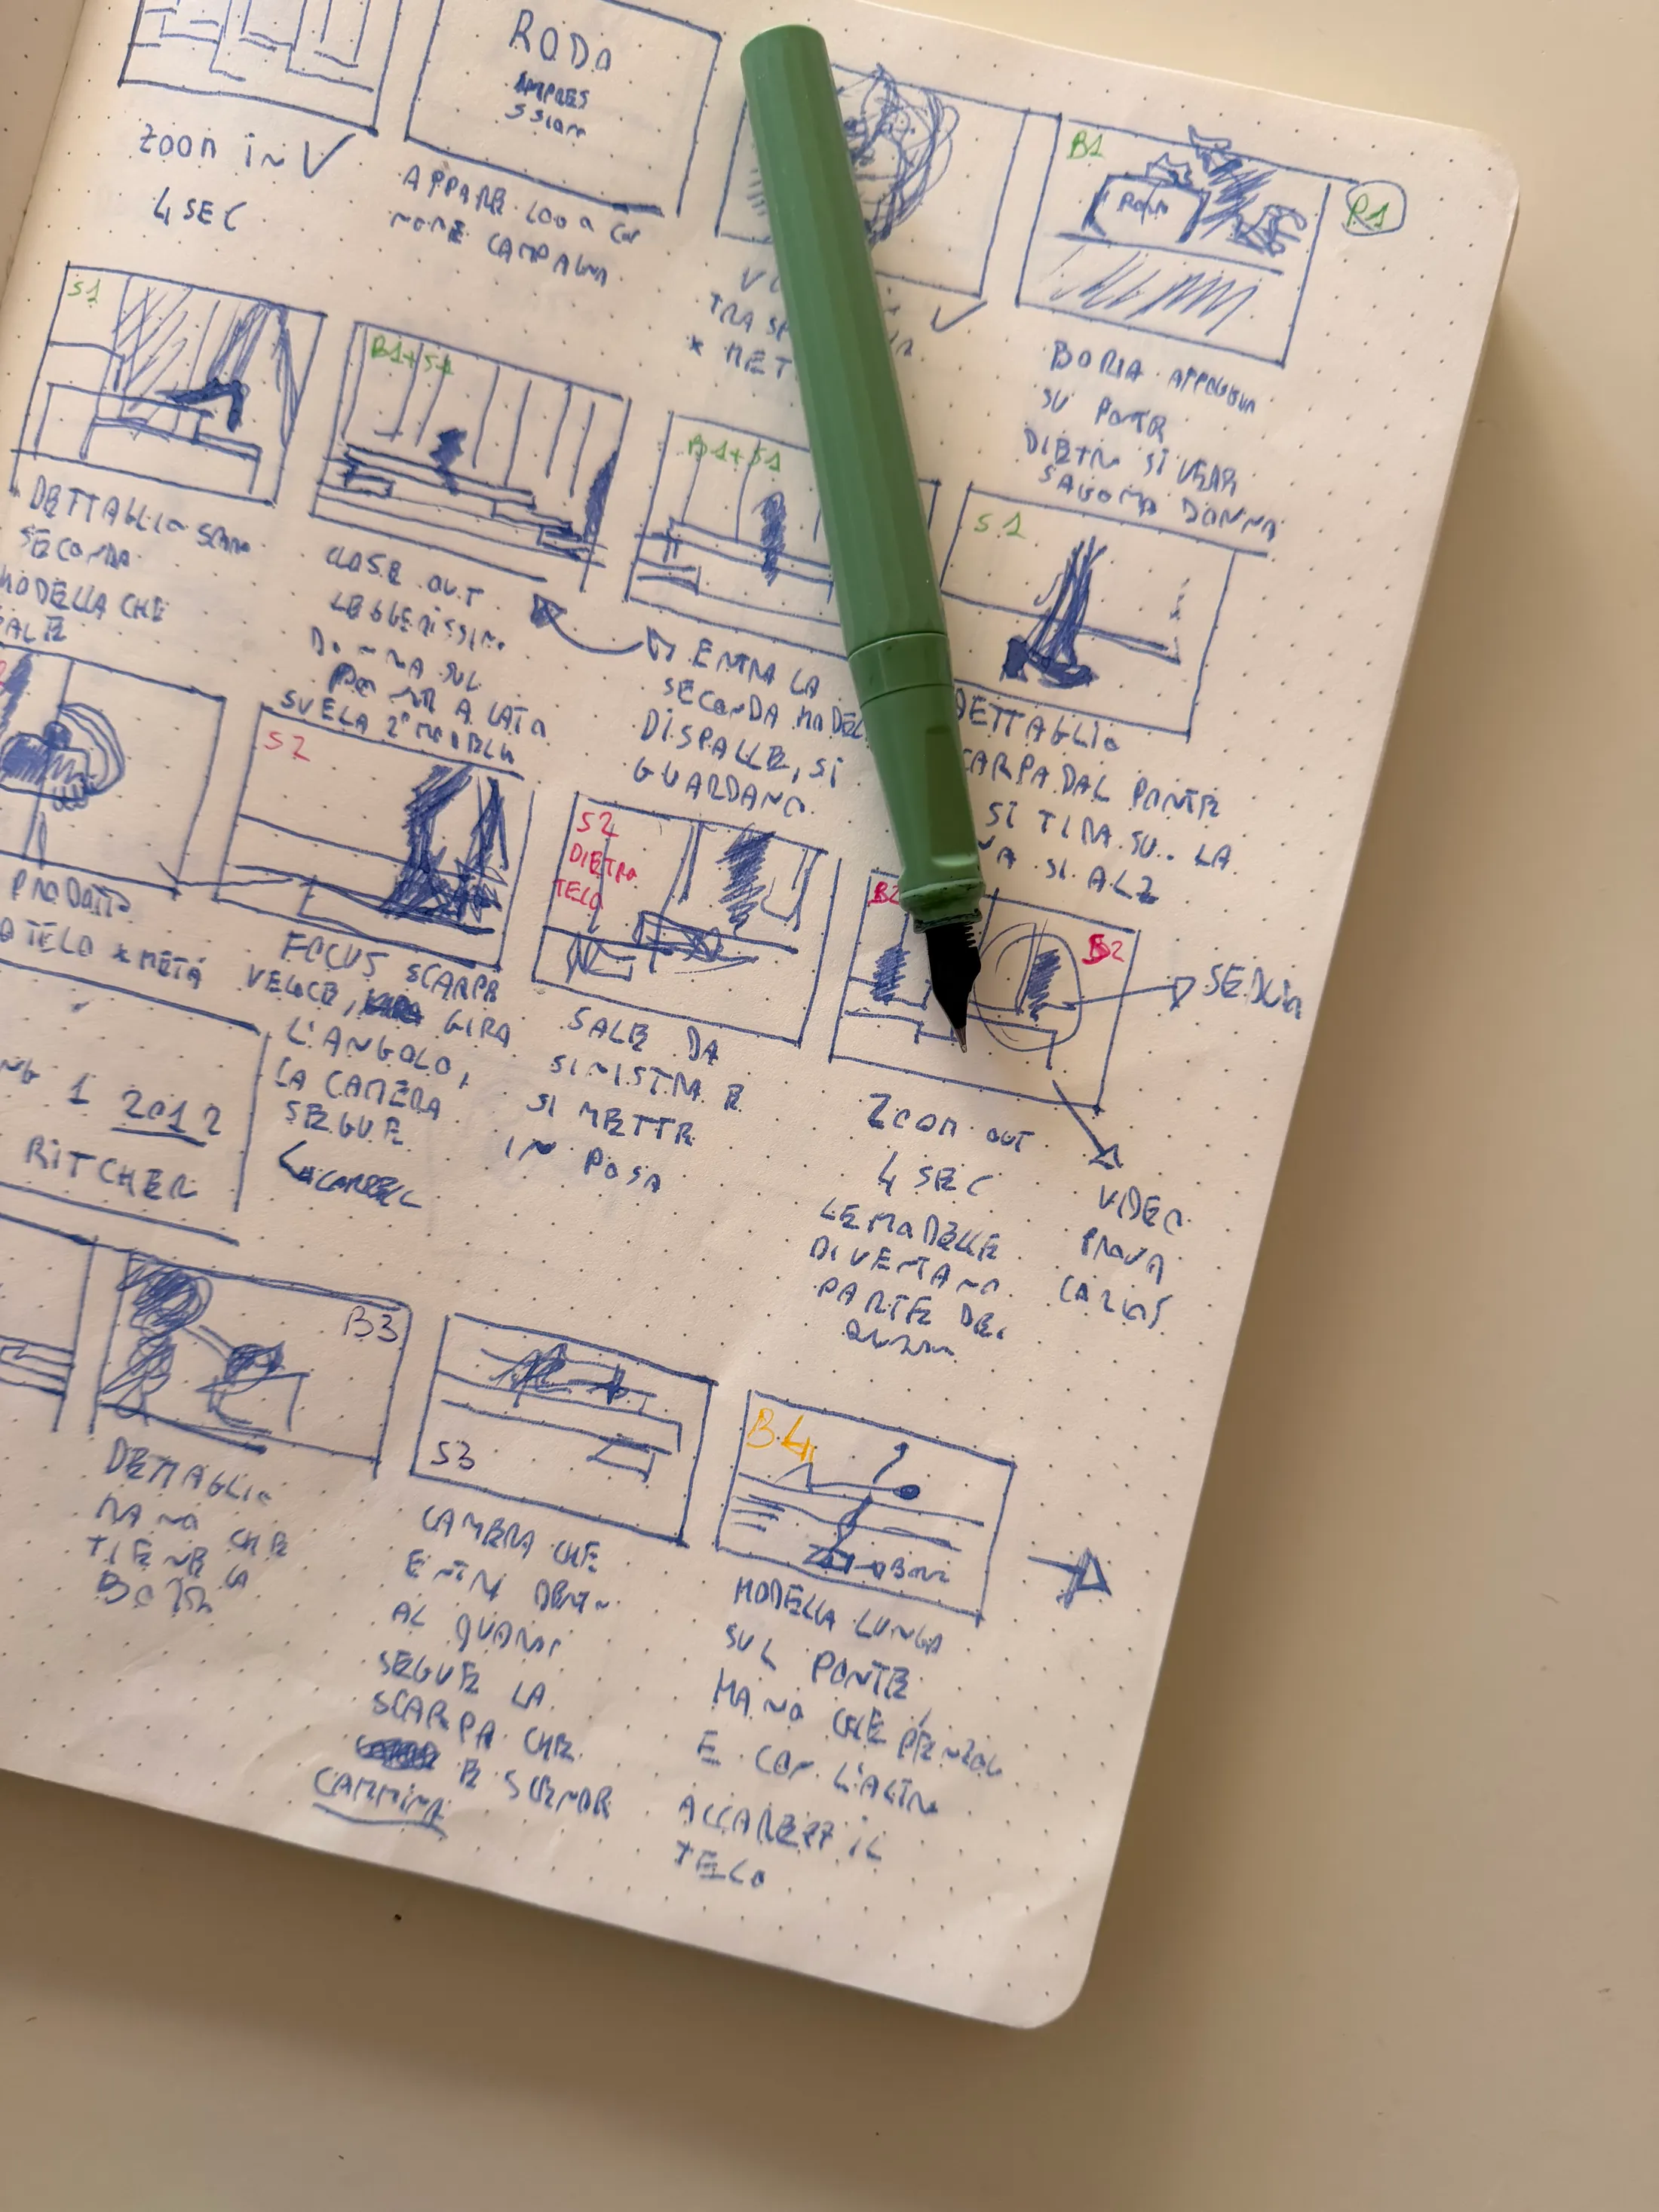 RODA
ZOOM IN
4 SEC
APPARE LOGO CON
NOME CAMPAGNA
TRA
* MET
B1
RODA
R1
BORSA
SU PONTE
DIETRO SI VEDE
SAGOMA DONNA
S1
DETTAGLIO
SECONDA
MODELLA CHE
SALE
B1+S1
CLOSE OUT
LEGGERISSIMO
DONNA SUL
PONTE A LATO
SVELA 2°
B1+S1
ENTRA LA
SECONDA MODEL
DI SPALLE, SI
GUARDANO
S1
DETTAGLIO
CARPA DAL PONTE
SI TIRA SU LA
SI ALZ
PRODOTTO
TELO * METÀ
S2
FOCUS SCARPE
VELOCE, GIRA
L'ANGOLO,
LA CAMERA
SEGUE
S2
DIETRO
TELO
SALE DA
SINISTRA E
SI METTE
IN POSA
B2
B2
SEDUTA
ZOOM OUT
4 SEC
LE MODELLE
DIVENTANO
PARTE DEL
VIDEO
PROVA
1 2012
RITCHER
B3
DETTAGLIO
MANO CHE
TIENE LA
BORSA
S3
CAMERA CHE
ENTRA DENTRO
AL QUADRO
SEGUE LA
SCARPA CHE
E SCENDE
CAMMINA
B4
MODELLA LUNGA
SUL PONTE
MANO CHE PENZOL
E CON L'ALTRA
ACCAREZZ IL
TELO